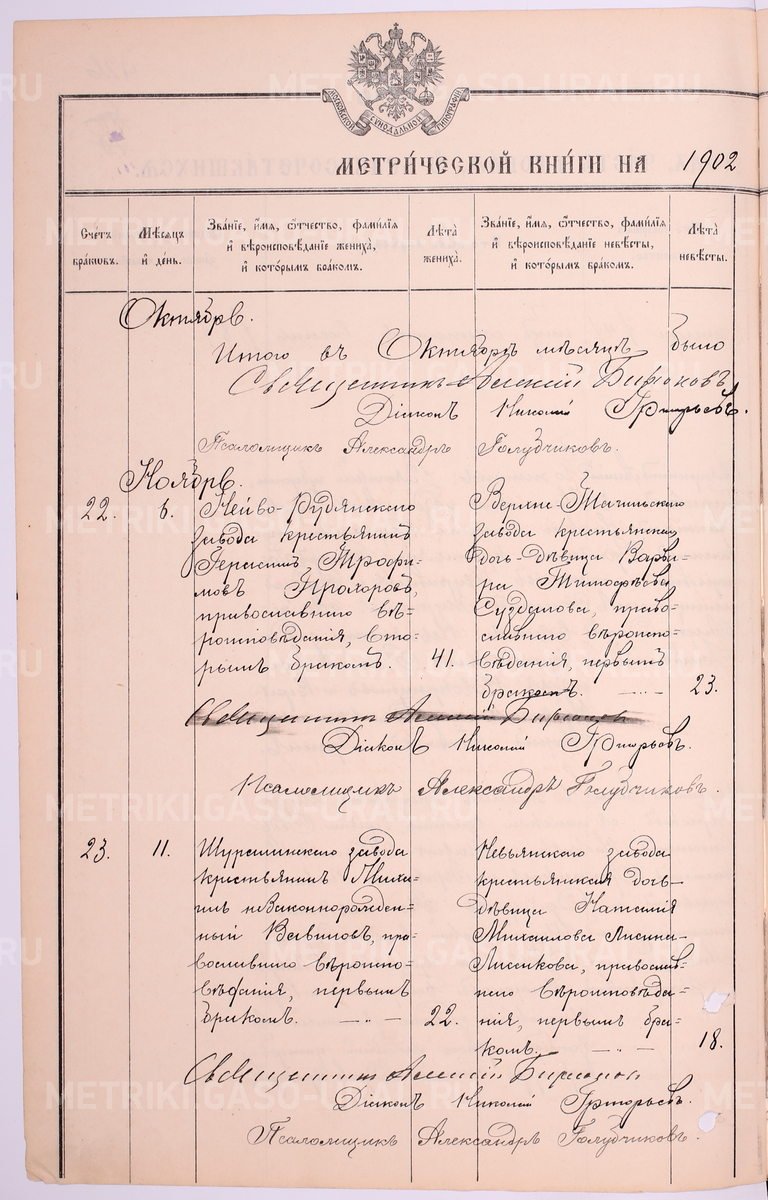 МОСКОВСКОЙ СѴНОДАЛЬНОЙ ТИПОГРАФІИ
МЕТРИ́ЧЕСКОЙ КНИ́ГИ НА 1902
Сче́тъ бра́кѡвъ.
Мѣ́сѧцъ и҆ де́нь.
Зва́нїе, и҆́мѧ, ѻ҆́тчество, фамі́лїѧ
и҆ вѣроисповѣ́данїе жениха̀,
и҆ кото́рымъ бра́комъ.
Лѣ̑та жениха̀.
Зва́нїе, и҆́мѧ, ѻ҆́тчество, фамі́лїѧ
и҆ вѣроисповѣ́данїе невѣ́сты,
и҆ кото́рымъ бра́комъ.
Лѣ̑та невѣ́сты.
Октябрь.
Итого въ Октябрѣ мѣсяцѣ было
Священникъ Алексій Бирюковъ
Діаконъ Николай Григорьевъ.
Псаломщикъ Александръ Голубчиковъ.
Ноябрь.
22. 6.
Нейво-Рудянскаго
завода крестьянинъ
Герасимъ Трофи=
мовъ Прохоровъ,
православнаго вѣ=
роисповѣданія, вто=
рымъ бракомъ. 41.
Верхне-Тагильскаго
завода крестьянская
дочь-дѣвица Варва=
ра Тимофѣева
Суздалова, право=
славнаго вѣроиспо=
вѣданія, первымъ
бракомъ. 23.
Священникъ Алексій Бирюковъ
Діаконъ Николай Григорьевъ.
Псаломщикъ Александръ Голубчиковъ.
23. 11.
Шуралинскаго завода
крестьянинъ Миха=
илъ незаконнорожден=
ный Вавиловъ, пра=
вославнаго вѣроиспо=
вѣданія, первымъ
бракомъ. 22.
Невьянскаго завода
крестьянская дочь-
дѣвица Наталія
Михаилова Лисина-
Лисенкова, православ=
наго вѣроисповѣда=
нія, первымъ бра=
комъ. 18.
Священникъ Алексій Бирюков
Діаконъ Николай Григорьевъ.
Псаломщикъ Александръ Голубчиковъ.
METRIKI.GASO-URAL.RU